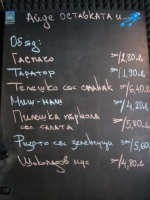 Айде оставката и...
Обяд:
Гаспачо 2,80лв
Таратор 1,90лв
Телешко със спанак 6,40лв
Миш-маш 4,20лв
Пилешка пържола
със салата 5,80лв
Ризото със зеленчуци 5,60
Шоколадов мус 4,80лв